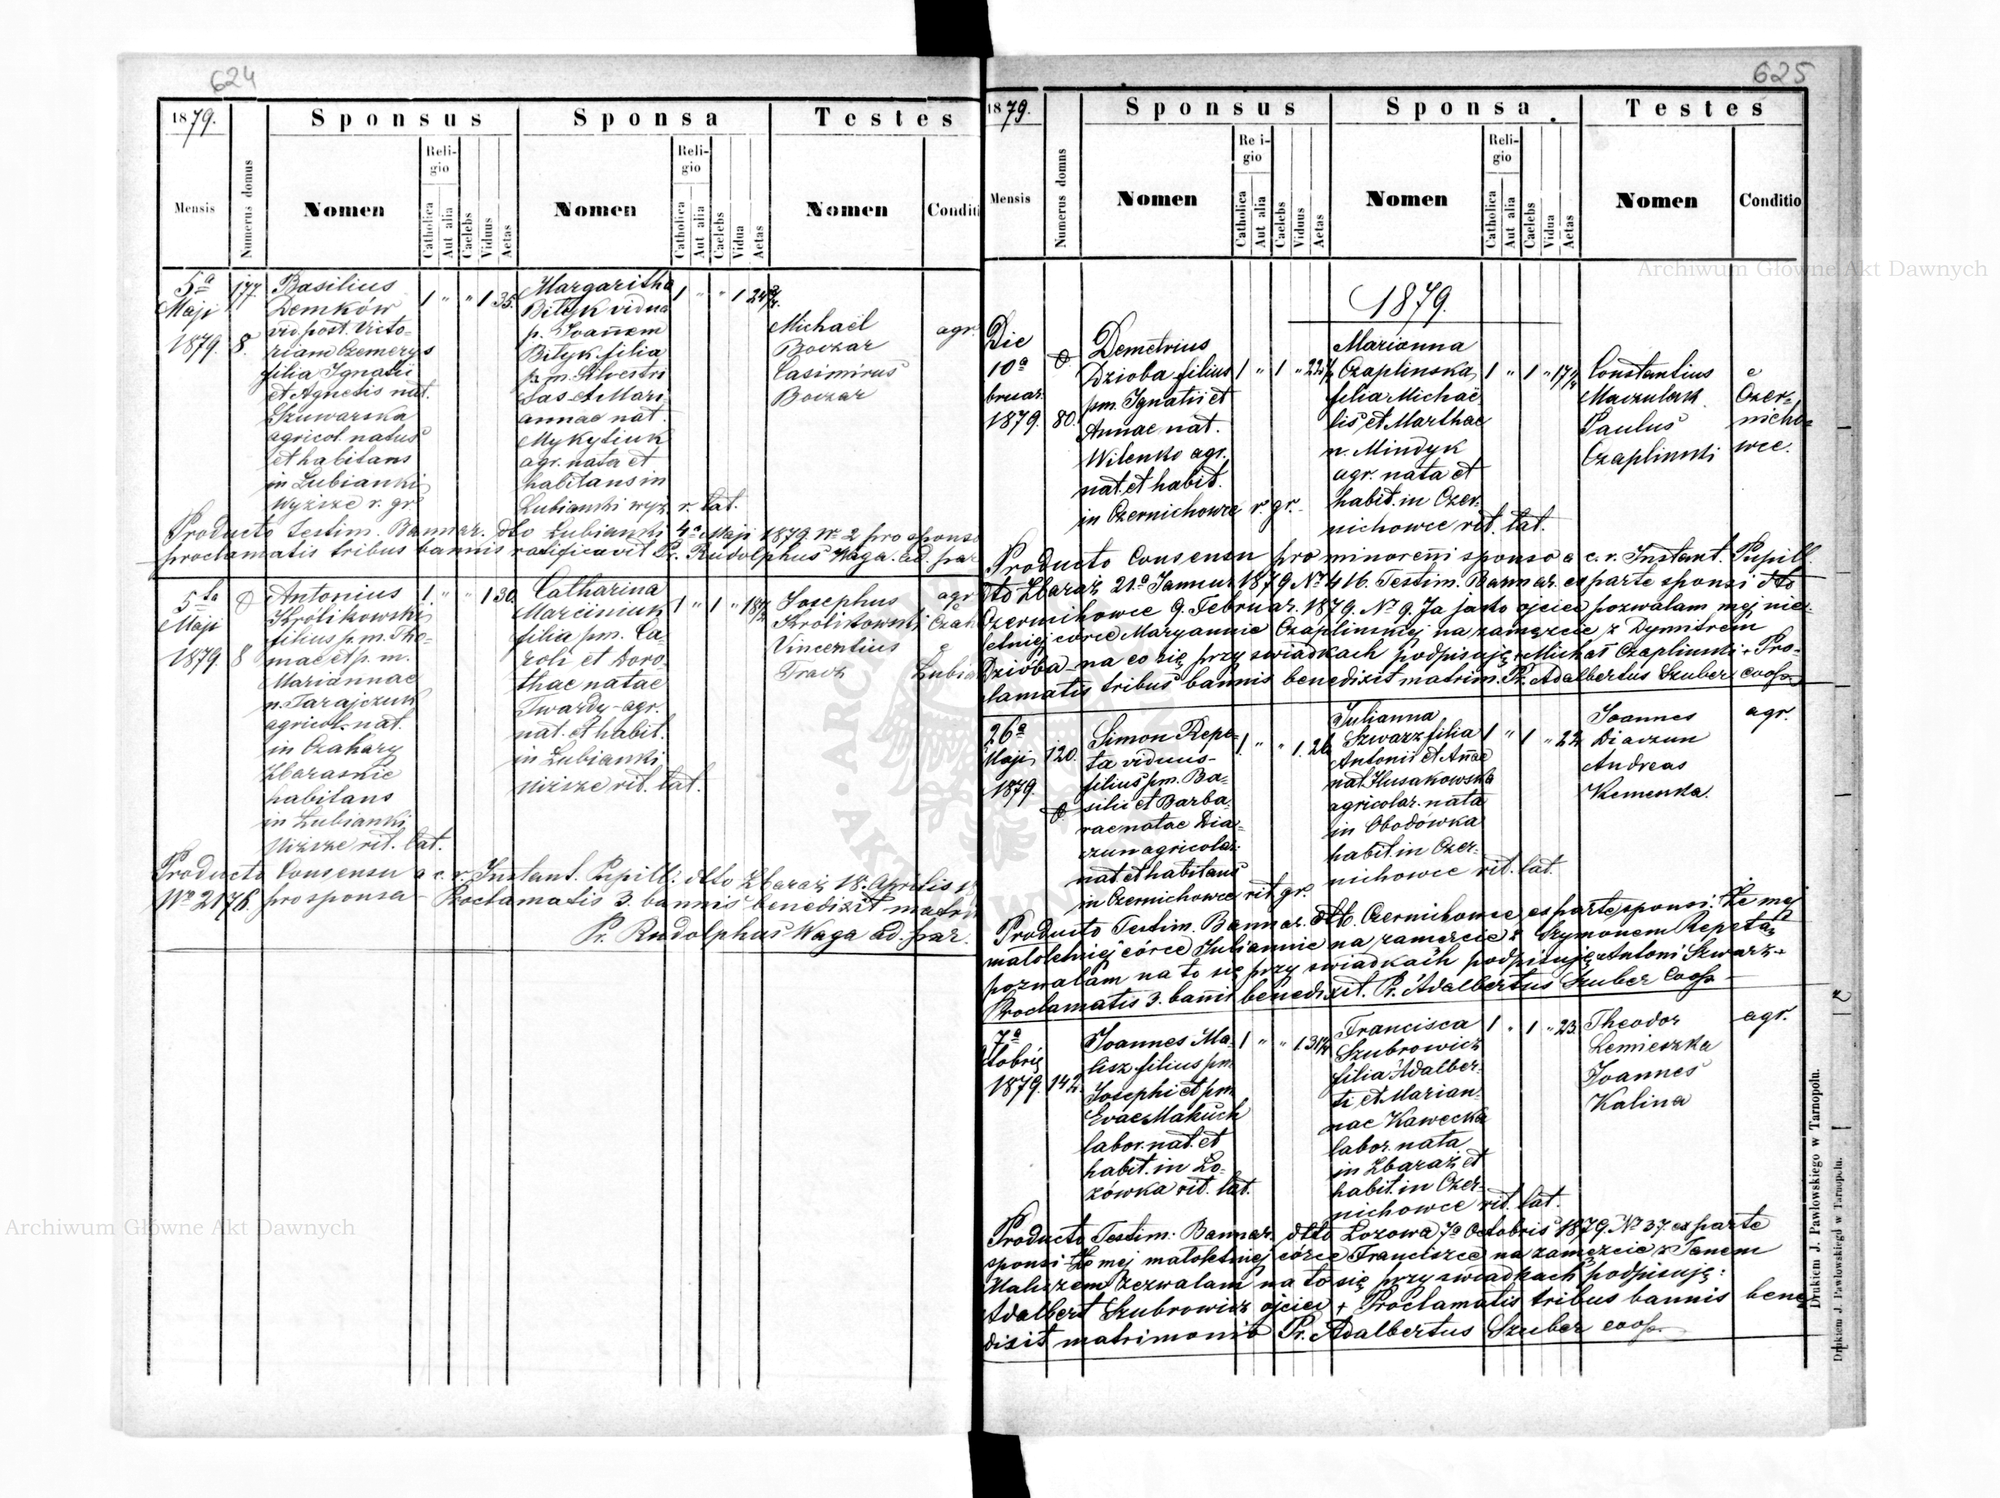 624
1879.
Sponsus
Sponsa
Testes
Mensis
Numerus domus
Nomen
Religio
Catholica
Aut alia
Caelebs
Viduus
Aetas
Nomen
Religio
Catholica
Aut alia
Caelebs
Vidua
Aetas
Nomen
Conditi
5ª
Maji
1879.
177
8.
Basilius
Demków
vid. post. Victo-
riam Czemerys
filia Ignatii
et Agnetis nat.
Szuwarska
agricol. natus
et habitans
in Lubianki
Wyższe r. gr.
1 " " 1 35.
Margaritha
Bityk vidua
p. Joannem
Bityk filia
p. m. Silvestri
Sas et Mari
annae nat.
Mykytiuk
agr. nata et
habitans in
Lubianki wyż. r. lat.
1 " " 1 24
Michael
Boczar
Casimirus
Boczar
agr.
Producto Testim. Bannar. dto Lubianki 4ª Maji 1879 Nº 2 pro sponso
proclamatis tribus bannis ratificavit Pr. Rudolphus Waga ad. par
5ta
Maji
1879.
8
Antonius
Królikowski
filius p. m. Tho-
mae et p. m.
Mariannae
n. Tarajczuk
agricol. nat.
in Czahary
Zbaraskie
habitans
in Lubianki
Niższe rit. lat.
1 " " 1 30.
Catharina
Marciniuk
filia pm. Ca
roli et Doro-
thae natae
Twardy agr.
nat. et habit.
in Lubianki
niższe rit. lat.
1 " 1 " 18½
Josephus
Królikowski
Vincentius
Tracz
agr
Czah
Lubia
Producto Consensu a c. r. Instant. Pupill. dtto Zbaraż 18. Aprilis 18
Nº 2176 pro sponsa - Proclamatis 3. bannis benedixit matri
Pr. Rudolphus Waga ad. par.
625
1879.
Sponsus
Sponsa
Testes
Mensis
Numerus domus
Nomen
Re i-
gio
Catholica
Aut alia
Caelebs
Viduus
Aetas
Nomen
Religio
Catholica
Aut alia
Caelebs
Vidua
Aetas
Nomen
Conditio
1879.
Die
10ª
bruar.
1879.
80.
Demetrius
Dzioba filius
pm. Ignatii et
Annae nat.
Wilenko agr.
nat. et habit.
in Czernichowce r. gr.
1 " 1 " 22½
Marianna
Czaplinska
filia Michaë
lis et Marthae
n. Mindyk
agr. nata et
habit. in Czer-
nichowce rit. lat.
1 " 1 " 17½
Constantius
Maczulak
Paulus
Czaplinski
e
Czer-
nicho-
wce.
Producto Consensu pro minoreñi sponso a c. r. Instant. Pupill.
dto Zbaraż 21ª Januar. 1879 Nº 416. Testim. Bannar. ex parte sponsi dto
Czernihowce 9. Februar. 1879. Nº 9. Ja jako ojciec pozwalam mej nie-
letniej córce Maryannie Czaplinskiej na zamęzcie z Dymitrem
Dzióba na co się przy swiadkach podpisuję + Michał Czaplinski + Pro-
clamatis tribus bannis benedixit matrim. Pr. Adalbertus Szuber coop.
26ª
Maji
1879.
120.
Simon Repe-
ta viduus
filius pm. Ba-
silii et Barba-
rae natae Dia-
czun agricolar.
nat. et habitans
in Czernichowce rit. gr.
1. " " 1. 26
Julianna
Szwarz filia
Antonii et Añae
nat. Husakowska
agricolar. nata
in Obodówka
habit. in Czer-
nichowce rit. lat.
1 " 1 " 22
Joannes
Diaczun
Andreas
Kemenka.
agr.
Producto Testim. Bannar. dtto. Czernichowce ex parte sponsi. Że mej
małoletniej córce Juliannie na zamezcie z Szymonem Repetą
pozwalam na to się przy swiadkach podpisuję Antoni Szwarz +
Proclamatis 3. bañis benedixit. Pr. Adalbertus Szuber Coop.
7ª
tobris
1879.
142.
Joannes Ma-
lisz filius pm.
Josephi et pm.
Evae Makuch
labor. nat. et
habit. in Lo-
zówka rit. lat.
1 " " 1. 31½
Francisca
Szubrowicz
filia Adalber-
ti et Marian-
nae Kawecka
labor. nata
in Zbaraż et
habit. in Czer-
nichowce rit. lat.
1 " 1 " 23.
Theodor
Lemieszka
Joannes
Kalina
agr.
Producto Testim. Bannar. dtto Lozowa 7ª Octobris 1879. Nº 37. ex parte
sponsi - Że mej małoletniej córce Franciszce na zamęzcie z Janem
Maliszem zezwalam na to się przy swiadkach podpisuję:
Adalbert Szubrowicz ojciec + Proclamatis tribus bannis bene-
dixit matrimonio Pr. Adalbertus Szuber coop.
Drukiem J. Pawłowskiego w Tarnopolu.
Drukiem J. Pawłowskiego w Tarnopolu.
Archiwum Główne Akt Dawnych
Archiwum Główne Akt Dawnych